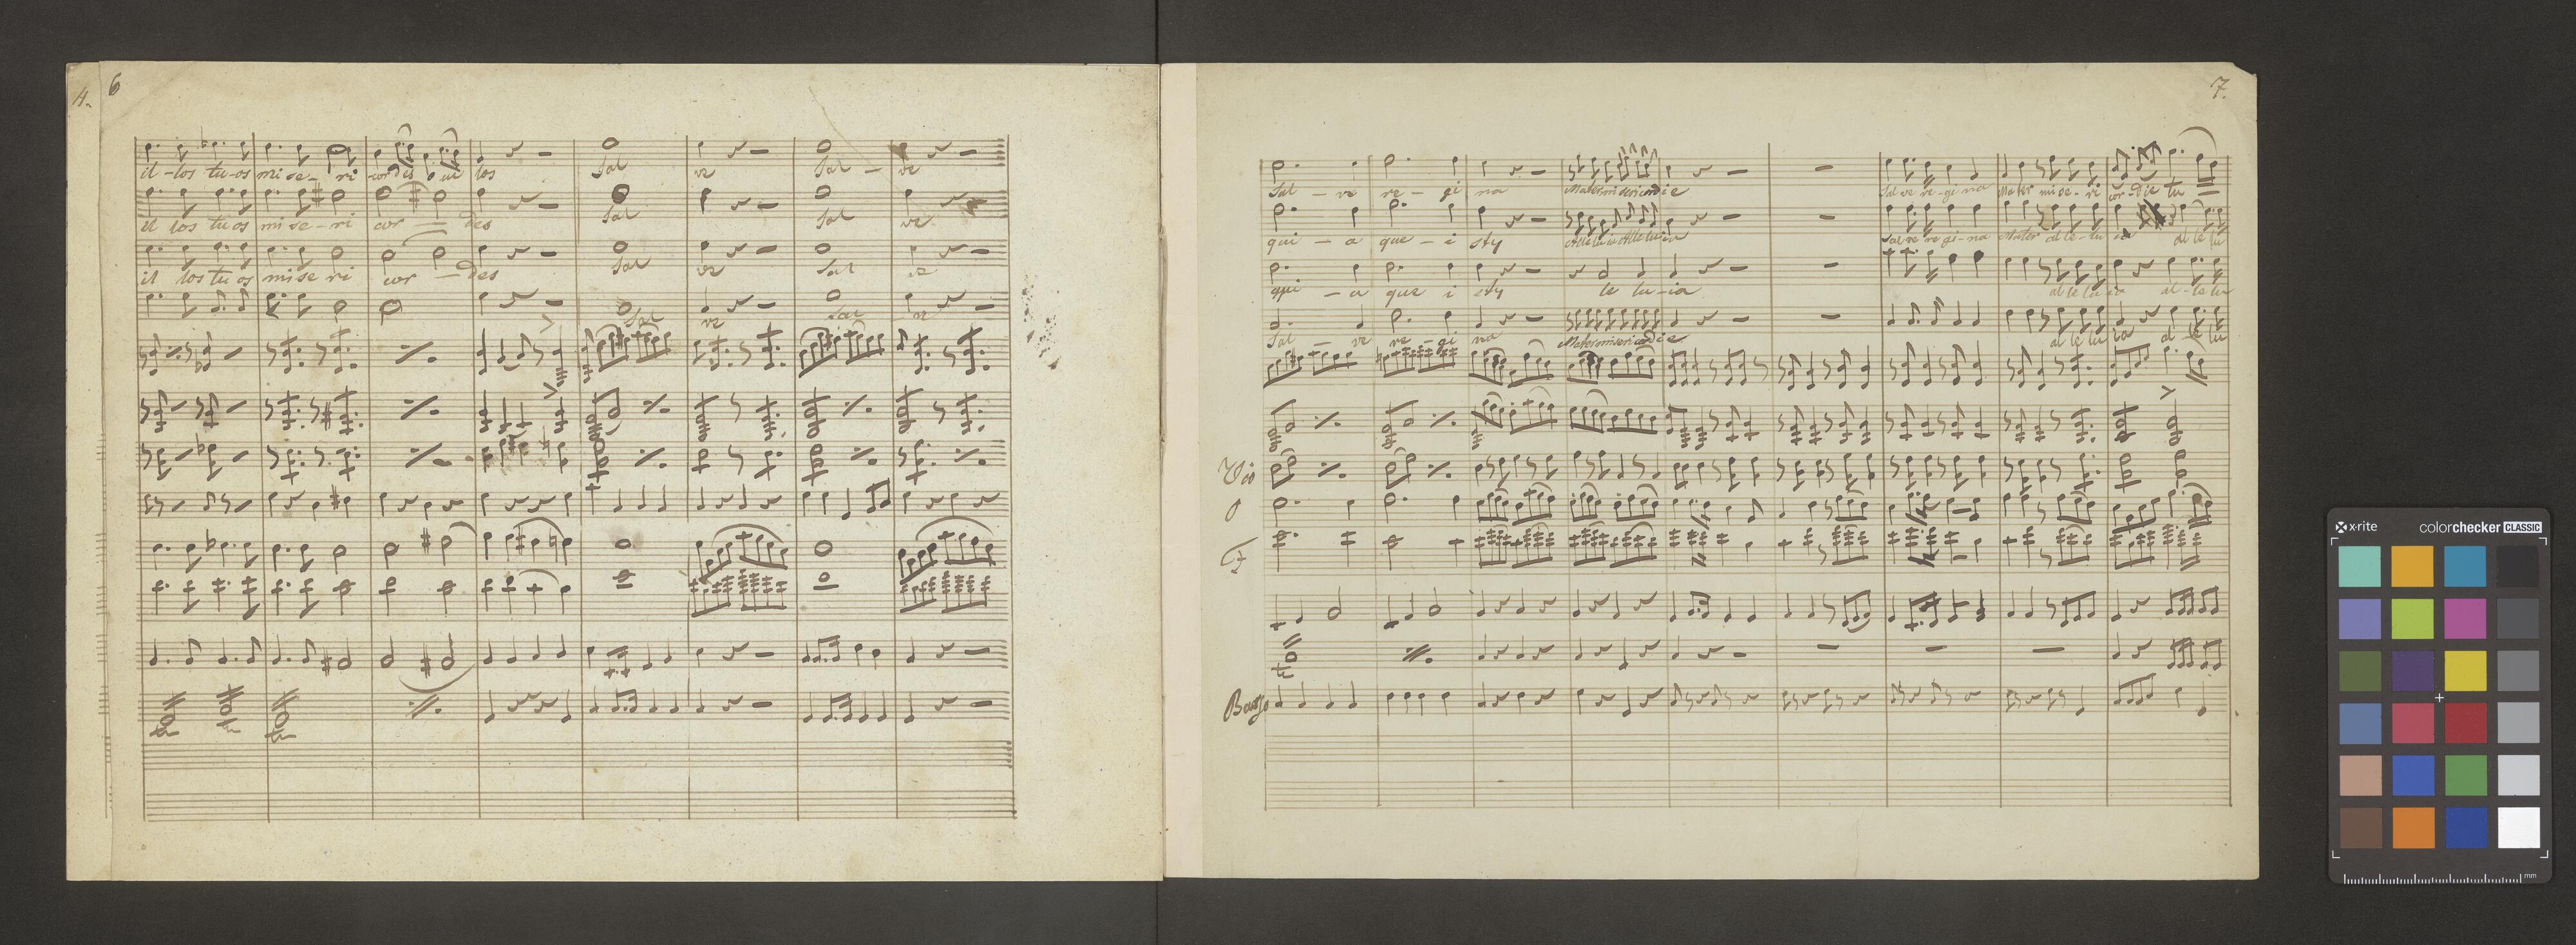 4.
6
il - los tu - os mi se - ri - cor dis o cu los
Sal
ve
Sal - ve
il los tu os mi se - ri cor - des
Sal
ve
Sal
ve
il los tu os mi se ri cor - des
Sal
ve
Sal
ve
Sal
ve
Sal - ve
tr
tr
tr
7.
Sal - ve re - gi na Mater misericordie
Salve re - gi na Mater mi se - ri cor - die tu
qui - a que - i sty Alleluia Alleluia
Salve re gi - na Mater al le - lu ia al le lu
qui - a que i sty le lu - ia
al le lu ia al - le lu
Sal - ve re - gi na Mater misericordie
al le lu ia al le lu
Vio
O
F
tr
Basso
x-rite
colorchecker CLASSIC
mm